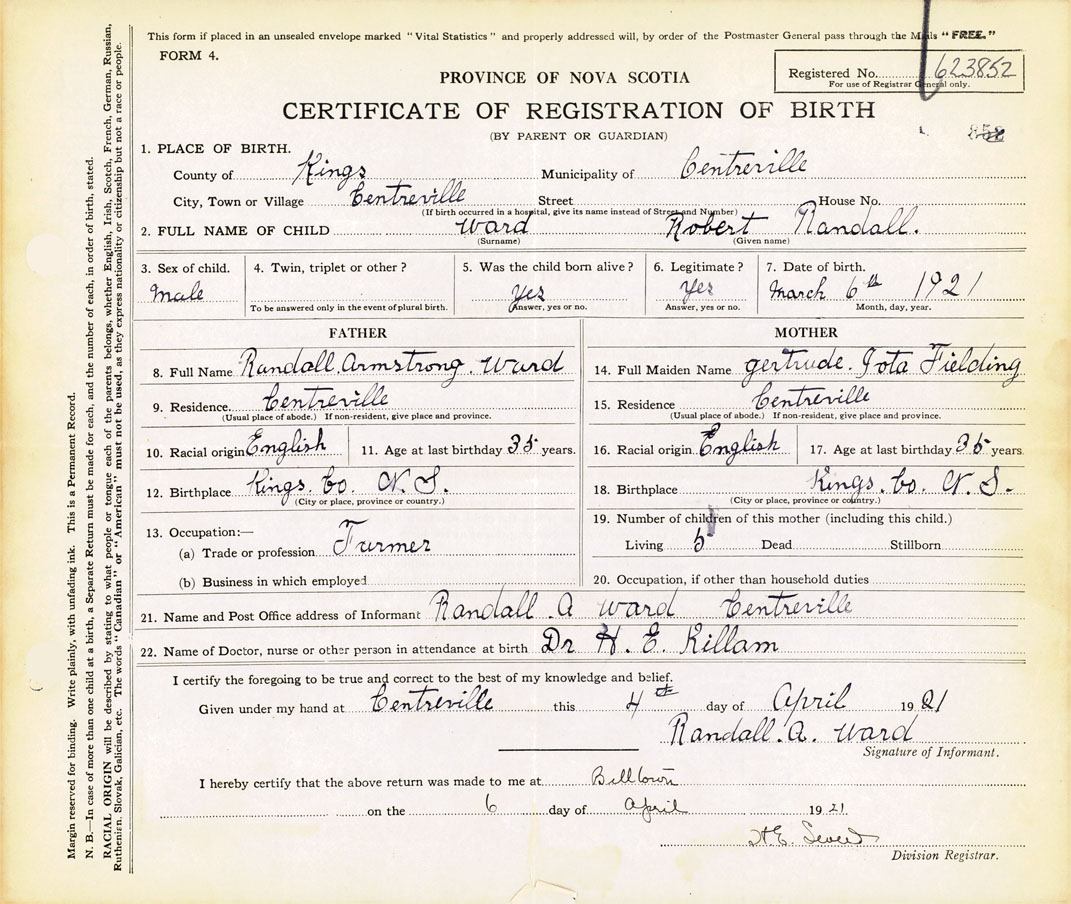 This form if placed in an unsealed envelope marked "Vital Statistics" and properly addressed will, by order of the Postmaster General pass through the Mails "FREE."
FORM 4.
PROVINCE OF NOVA SCOTIA
Registered No. 623852
For use of Registrar General only.
CERTIFICATE OF REGISTRATION OF BIRTH
(BY PARENT OR GUARDIAN)
1. PLACE OF BIRTH.
County of Kings Municipality of Centreville
City, Town or Village Centreville Street House No.
(If birth occurred in a hospital, give its name instead of Street and Number)
2. FULL NAME OF CHILD Ward Robert Randall.
(Surname) (Given name)
3. Sex of child. 4. Twin, triplet or other? 5. Was the child born alive? 6. Legitimate? 7. Date of birth.
Male Yes Yes March 6th 1921
To be answered only in the event of plural birth. Answer, yes or no. Answer, yes or no. Month, day, year.
FATHER MOTHER
8. Full Name Randall Armstrong Ward 14. Full Maiden Name Gertrude Iota Fielding
9. Residence Centreville 15. Residence Centreville
(Usual place of abode.) If non-resident, give place and province. (Usual place of abode.) If non-resident, give place and province.
10. Racial origin English 11. Age at last birthday 35 years. 16. Racial origin English 17. Age at last birthday 35 years
12. Birthplace Kings. Co. N. S. 18. Birthplace Kings. Co. N. S.
(City or place, province or country.) (City or place, province or country.)
13. Occupation:— 19. Number of children of this mother (including this child.)
(a) Trade or profession Farmer Living 5 Dead Stillborn
(b) Business in which employed 20. Occupation, if other than household duties
21. Name and Post Office address of Informant Randall A Ward Centreville
22. Name of Doctor, nurse or other person in attendance at birth Dr H. E. Killam
I certify the foregoing to be true and correct to the best of my knowledge and belief.
Given under my hand at Centreville this 4th day of April 1921
Randall. A. Ward
Signature of Informant.
I hereby certify that the above return was made to me at Billtown
on the 6 day of April 1921
H.E.
Division Registrar.
Margin reserved for binding. Write plainly, with unfading ink. This is a Permanent Record.
N. B.—In case of more than one child at a birth, a Separate Return must be made for each, and the number of each, in order of birth, stated.
RACIAL ORIGIN will be described by stating to what people or tongue each of the parents belongs, whether English, Irish, Scotch, French, German, Russian,
Ruthenian, Slovak, Galician, etc. The words "Canadian" or "American" must not be used, as they express nationality or citizenship but not a race or people.